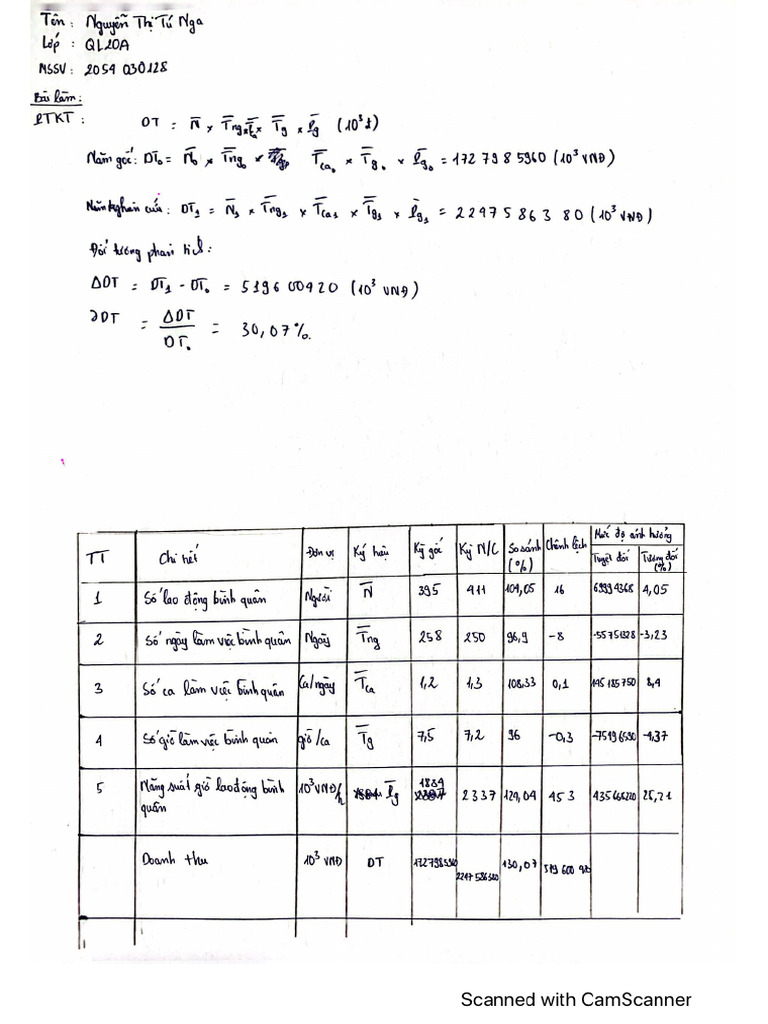 Tên : Nguyễn Thị Tú Nga
Lớp : QL20A
MSSV : 2054 030128
Bài làm :
PTKT : DT = N̄ × T̄ng × T̄ca × T̄g × l̄g (10³đ)
Năm gốc : DT₀ = N̄₀ × T̄ng₀ × T̄ca₀ × T̄g₀ × l̄g₀ = 1727985960 (10³ VNĐ)
Năm nghiên cứu : DT₁ = N̄₁ × T̄ng₁ × T̄ca₁ × T̄g₁ × l̄g₁ = 2247586380 (10³ VNĐ)
Đối tượng phân tích :
ΔDT = DT₁ - DT₀ = 519600420 (10³ VNĐ)
∂DT = ΔDT / DT₀ = 30,07%.
TT Chỉ tiết Đơn vị Ký hiệu Kỳ gốc Kỳ N/C So sánh (%) Chênh lệch Mức độ ảnh hưởng
Tuyệt đối Tương đối (%)
1 Số lao động bình quân Người N̄ 395 411 104,05 16 69994368 4,05
2 Số ngày làm việc bình quân Ngày T̄ng 258 250 96,9 -8 -3,23
3 Số ca làm việc bình quân Ca/ngày T̄ca 1,2 1,3 108,33 0,1 145185750 8,4
4 Số giờ làm việc bình quân giờ/ca T̄g 7,5 7,2 96 -0,3 -4,37
5 Năng suất giờ lao động bình quân 10³VNĐ/h l̄g 1884 2337 124,04 453 25,21
Doanh thu 10³ VNĐ DT 2247586380 130,07 519 600 420
Scanned with CamScanner